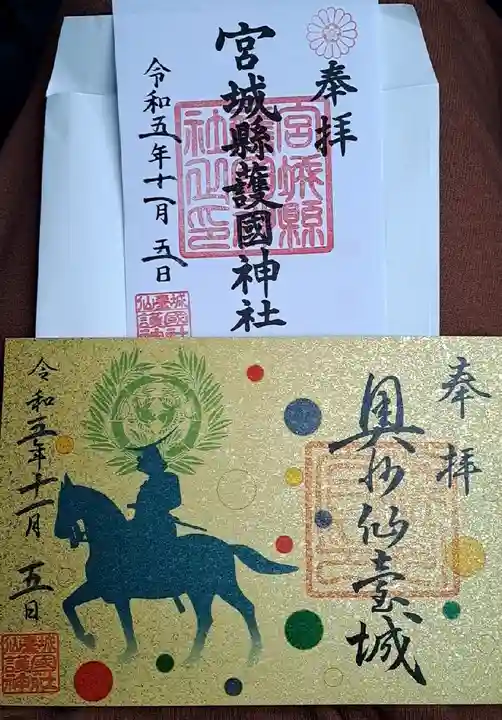 奉拝
宮城縣護國神社
令和五年十一月五日
宮城縣
社之印
奉拝
奥州仙臺城
令和五年十一月五日